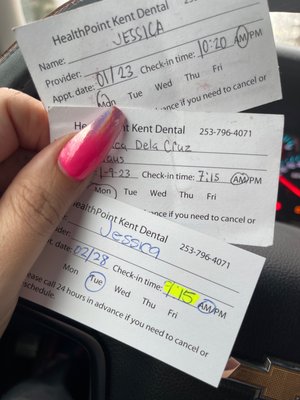 HealthPoint Kent Dental
Name: JESSICA
Provider:
Appt. date: 01/23 Check-in time: 10:20 AM/PM
Mon Tue Wed Thu Fri
ance if you need to cancel or
Kent Dental 253-796-4071
ca Dela Cruz
1-9-23 Check-in time: 7:15 AM/PM
Mon Tue Wed Thu Fri
ance if you need to cancel or
HealthPoint Kent Dental
253-796-4071
Jessica
date: 02/28 Check-in time: 7:15 AM/PM
Mon Tue Wed Thu Fri
ase call 24 hours in advance if you need to cancel or
schedule.